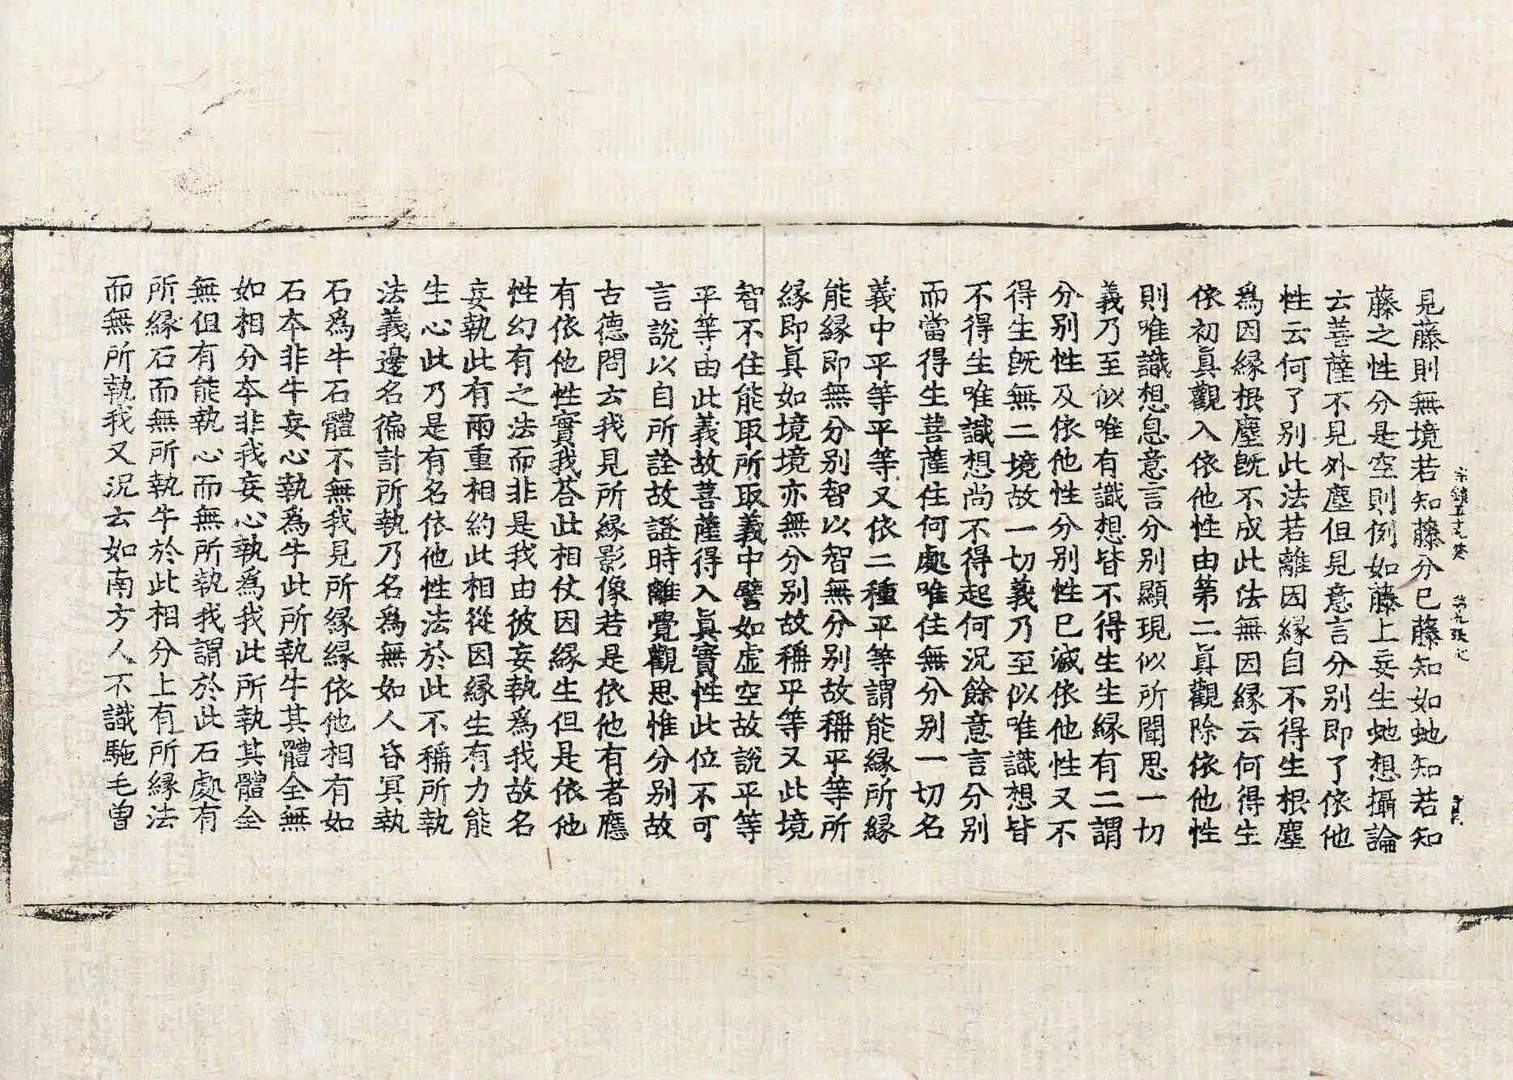 宗鏡五十九卷 第九張 七
見藤則無境若知藤分已藤知如虵知若知
藤之性分是空則例如藤上妄生虵想攝論
云菩薩不見外塵但見意言分別即了依他
性云何了別此法若離因緣自不得生根塵
爲因緣根塵旣不成此法無因緣云何得生
依初眞觀入依他性由第二眞觀除依他性
則唯識想息意言分別顯現似所聞思一切
義乃至似唯有識想皆不得生生緣有二謂
分別性及依他性分別性已滅依他性又不
得生旣無二境故一切義乃至似唯識想皆
不得生唯識想尚不得起何況餘意言分別
而當得生菩薩住何處唯住無分別一切名
義中平等平等又依二種平等謂能緣所緣
能緣即無分別智以智無分別故稱平等所
緣即眞如境境亦無分別故稱平等又此境
智不住能取所取義中譬如虛空故說平等
平等由此義故菩薩得入眞實性此位不可
言說以自所詮故證時離覺觀思惟分別故
古德問云我見所緣影像若是依他有者應
有依他性實我荅此相仗因緣生但是依他
性幻有之法而非是我由彼妄執爲我故名
妄執此有兩重相約此相從因緣生有力能
生心此乃是有名依他性法於此不稱所執
法義邊名徧計所執乃名爲無如人昏冥執
石爲牛石體不無我見所緣緣依他相有如
石本非牛妄心執爲牛此所執牛其體全無
如相分本非我妄心執爲我此所執其體全
無但有能執心而無所執我謂於此石處有
所緣石而無所執牛於此相分上有所緣法
而無所執我又況云如南方人不識駞毛曾